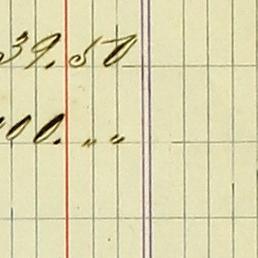 39.50
00. „ „